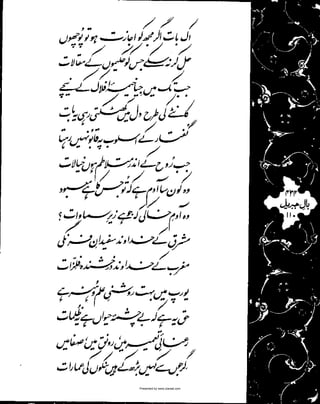 اک بات اگر مجھ کو اجازت ہو تو پوچھوں
حل کر نہ سکے جس کو حکیموں کے مقالات
جب تک میں جیا خیمۂ افلاک کے نیچے
کانٹے کی طرح دل میں کھٹکتی رہی یہ بات
گفتار کے اسلوب پہ قابو نہیں رہتا
جب روح کے اندر متلاطم ہوں خیالات
وہ کون سا آدم ہے کہ تو جس کا ہے معبود
وہ آدمِ خاکی کہ جو ہے زیرِ سماوات؟
مشرق کے خداوند سفیدانِ فرنگی
مغرب کے خداوند درخشندہ فلزات
یورپ میں بہت روشنیِ علم و ہنر ہے
حق یہ ہے کہ بے چشمۂ حیواں ہے یہ ظلمات
رعنائیِ تعمیر میں، رونق میں، صفا میں
گرجوں سے کہیں بڑھ کے ہیں بنکوں کی عمارات
۴۳۴
بالِ جبریل
۱۱۰